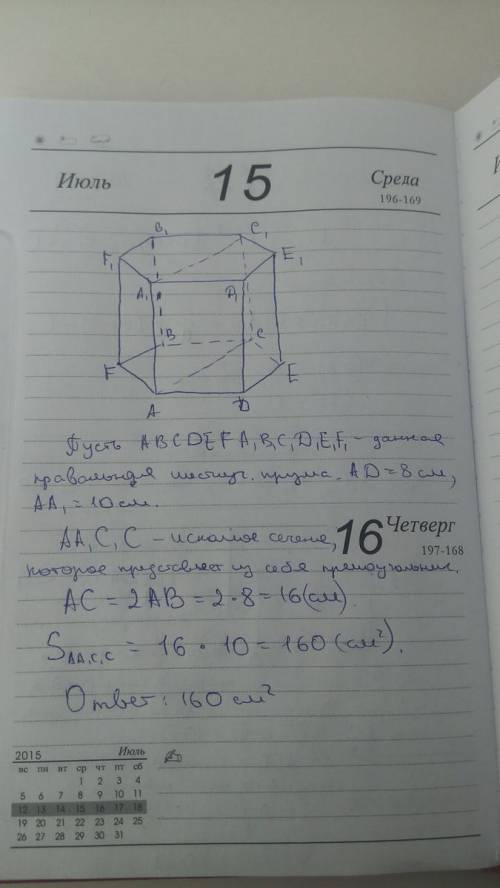 Июль 15 Среда
196-169
B₁ C₁
F₁ E₁
A₁ D₁
B C
F E
A D
Пусть ABCDEFA₁B₁C₁D₁E₁F₁ - данная
правильная шестиуг. призма. AD = 8 см,
AA₁ = 10 см.
AA₁C₁C - искомое сечение,
16 Четверг
197-168
которое представляет из себя прямоугольник.
AC = 2AB = 2 • 8 = 16 (см).
S AA₁C₁C = 16 • 10 = 160 (см²).
Ответ: 160 см²
2015 Июль
вс пн вт ср чт пт сб
1 2 3 4
5 6 7 8 9 10 11
12 13 14 15 16 17 18
19 20 21 22 23 24 25
26 27 28 29 30 31